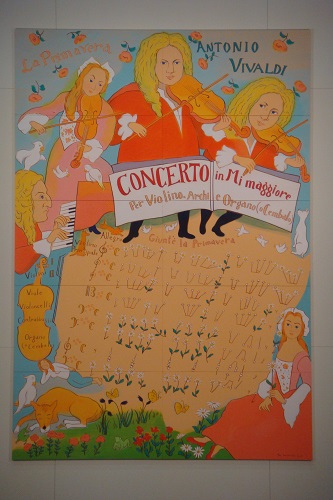 La Primavera
ANTONIO
VIVALDI
CONCERTO in Mi maggiore
Per Violino, Archi e Organo (o Cembalo)
Allegro
Giunt'è la Primavera
Violino
Viola
Organo